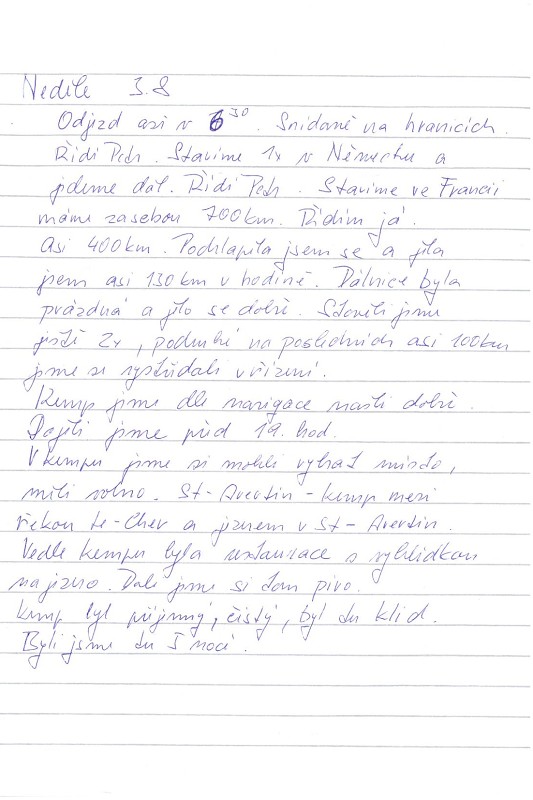 Neděle 3.8
Odjezd asi v 6 30. Snídaně na hranicích.
Řídí Petr. Stavíme 1x v Německu a
jdeme dál. Řídí Petr. Stavíme ve Francii
máme zasebou 700km. Řídím já.
Asi 400km. Podchlapila jsem se a jela
jsem asi 130km v hodině. Dálnice byla
prázdná a jelo se dobře. Stavěli jsme
ještě 2x, podruhé na posledních asi 100km
jsme se vystřídali v řízení.
Kemp jsme dle navigace našli dobře.
Dojeli jsme před 19. hod.
V kempu jsme si mohli vybrat místo,
měli volno. St-Avertin - kemp mezi
řekou le-Cher a jezerem v St-Avertin.
Vedle kempu byla restaurace s vyhlídkou
na jezero. Dali jsme si tam pivo.
Kemp byl příjemný, čistý, byl tu klid.
Byli jsme tu 5 nocí.